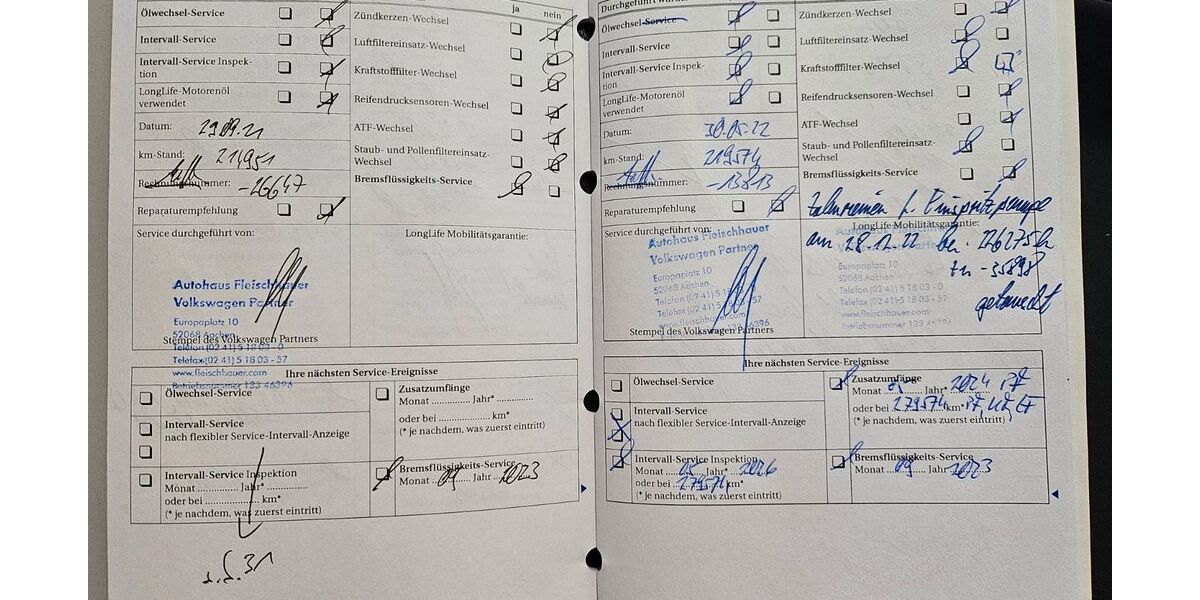 Ölwechsel-Service
Intervall-Service
Intervall-Service Inspek-
tion
LongLife-Motorenöl
verwendet
Datum: 29.09.21
km-Stand: 214951
Rechnungsnummer: -26647
Reparaturempfehlung
Service durchgeführt von:
Autohaus Fleischhauer
Volkswagen Partner
Europaplatz 10
52068 Aachen
Stempel des Volkswagen Partners
Telefon (02 41) 5 18 03 - 0
Telefax (02 41) 5 18 03 - 57
www.fleischhauer.com
Betriebsnummer 133 46396
ja nein
Zündkerzen-Wechsel
Luftfiltereinsatz-Wechsel
Kraftstofffilter-Wechsel
Reifendrucksensoren-Wechsel
ATF-Wechsel
Staub- und Pollenfiltereinsatz-
Wechsel
Bremsflüssigkeits-Service
LongLife Mobilitätsgarantie:
Ihre nächsten Service-Ereignisse
Ölwechsel-Service
Intervall-Service
nach flexibler Service-Intervall-Anzeige
Intervall-Service Inspektion
Monat ............ Jahr* ............
oder bei .................. km*
(* je nachdem, was zuerst eintritt)
Zusatzumfänge
Monat ............ Jahr* ............
oder bei .................. km*
(* je nachdem, was zuerst eintritt)
Bremsflüssigkeits-Service
Monat 09 Jahr 2023
Durchgeführt
Ölwechsel-Service
Intervall-Service
Intervall-Service Inspek-
tion
LongLife-Motorenöl
verwendet
Datum: 30.05.22
km-Stand: 219574
Rechnungsnummer: -13813
Reparaturempfehlung
Service durchgeführt von:
Autohaus Fleischhauer
Volkswagen Partner
Europaplatz 10
52068 Aachen
Telefon (02 41) 5 18 03 - 0
Telefax (02 41) 5 18 03 - 57
www.fleischhauer.com
Stempel des Volkswagen Partners
Zündkerzen-Wechsel
Luftfiltereinsatz-Wechsel
Kraftstofffilter-Wechsel
Reifendrucksensoren-Wechsel
ATF-Wechsel
Staub- und Pollenfiltereinsatz-
Wechsel
Bremsflüssigkeits-Service
Zahnriemen f. Einspritzpumpe
LongLife Mobilitätsgarantie:
am 28.12.22 bei 226275
-35898
getauscht
Europaplatz 10
52068 Aachen
Telefon (02 41) 5 18 03 - 0
Telefax (02 41) 5 18 03 - 57
www.fleischhauer.com
Betriebsnummer 133 46396
Ihre nächsten Service-Ereignisse
Ölwechsel-Service
Intervall-Service
nach flexibler Service-Intervall-Anzeige
Intervall-Service Inspektion
Monat 05 Jahr* 2026
oder bei 279574 km*
(* je nachdem, was zuerst eintritt)
Zusatzumfänge
Monat 05 Jahr* 2024
oder bei 279574 km*
(* je nachdem, was zuerst eintritt)
Bremsflüssigkeits-Service
Monat 09 Jahr 2023